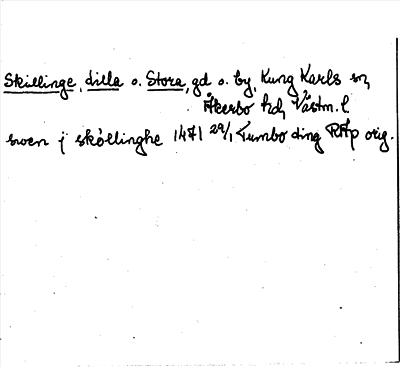 Skillinge, Lilla o. Stora, gd o. by, Kung Karls sn,
Åkerbo hd, Västm. l
swen j skællinghe 1471 29/1 Tumbo ding RAp orig.